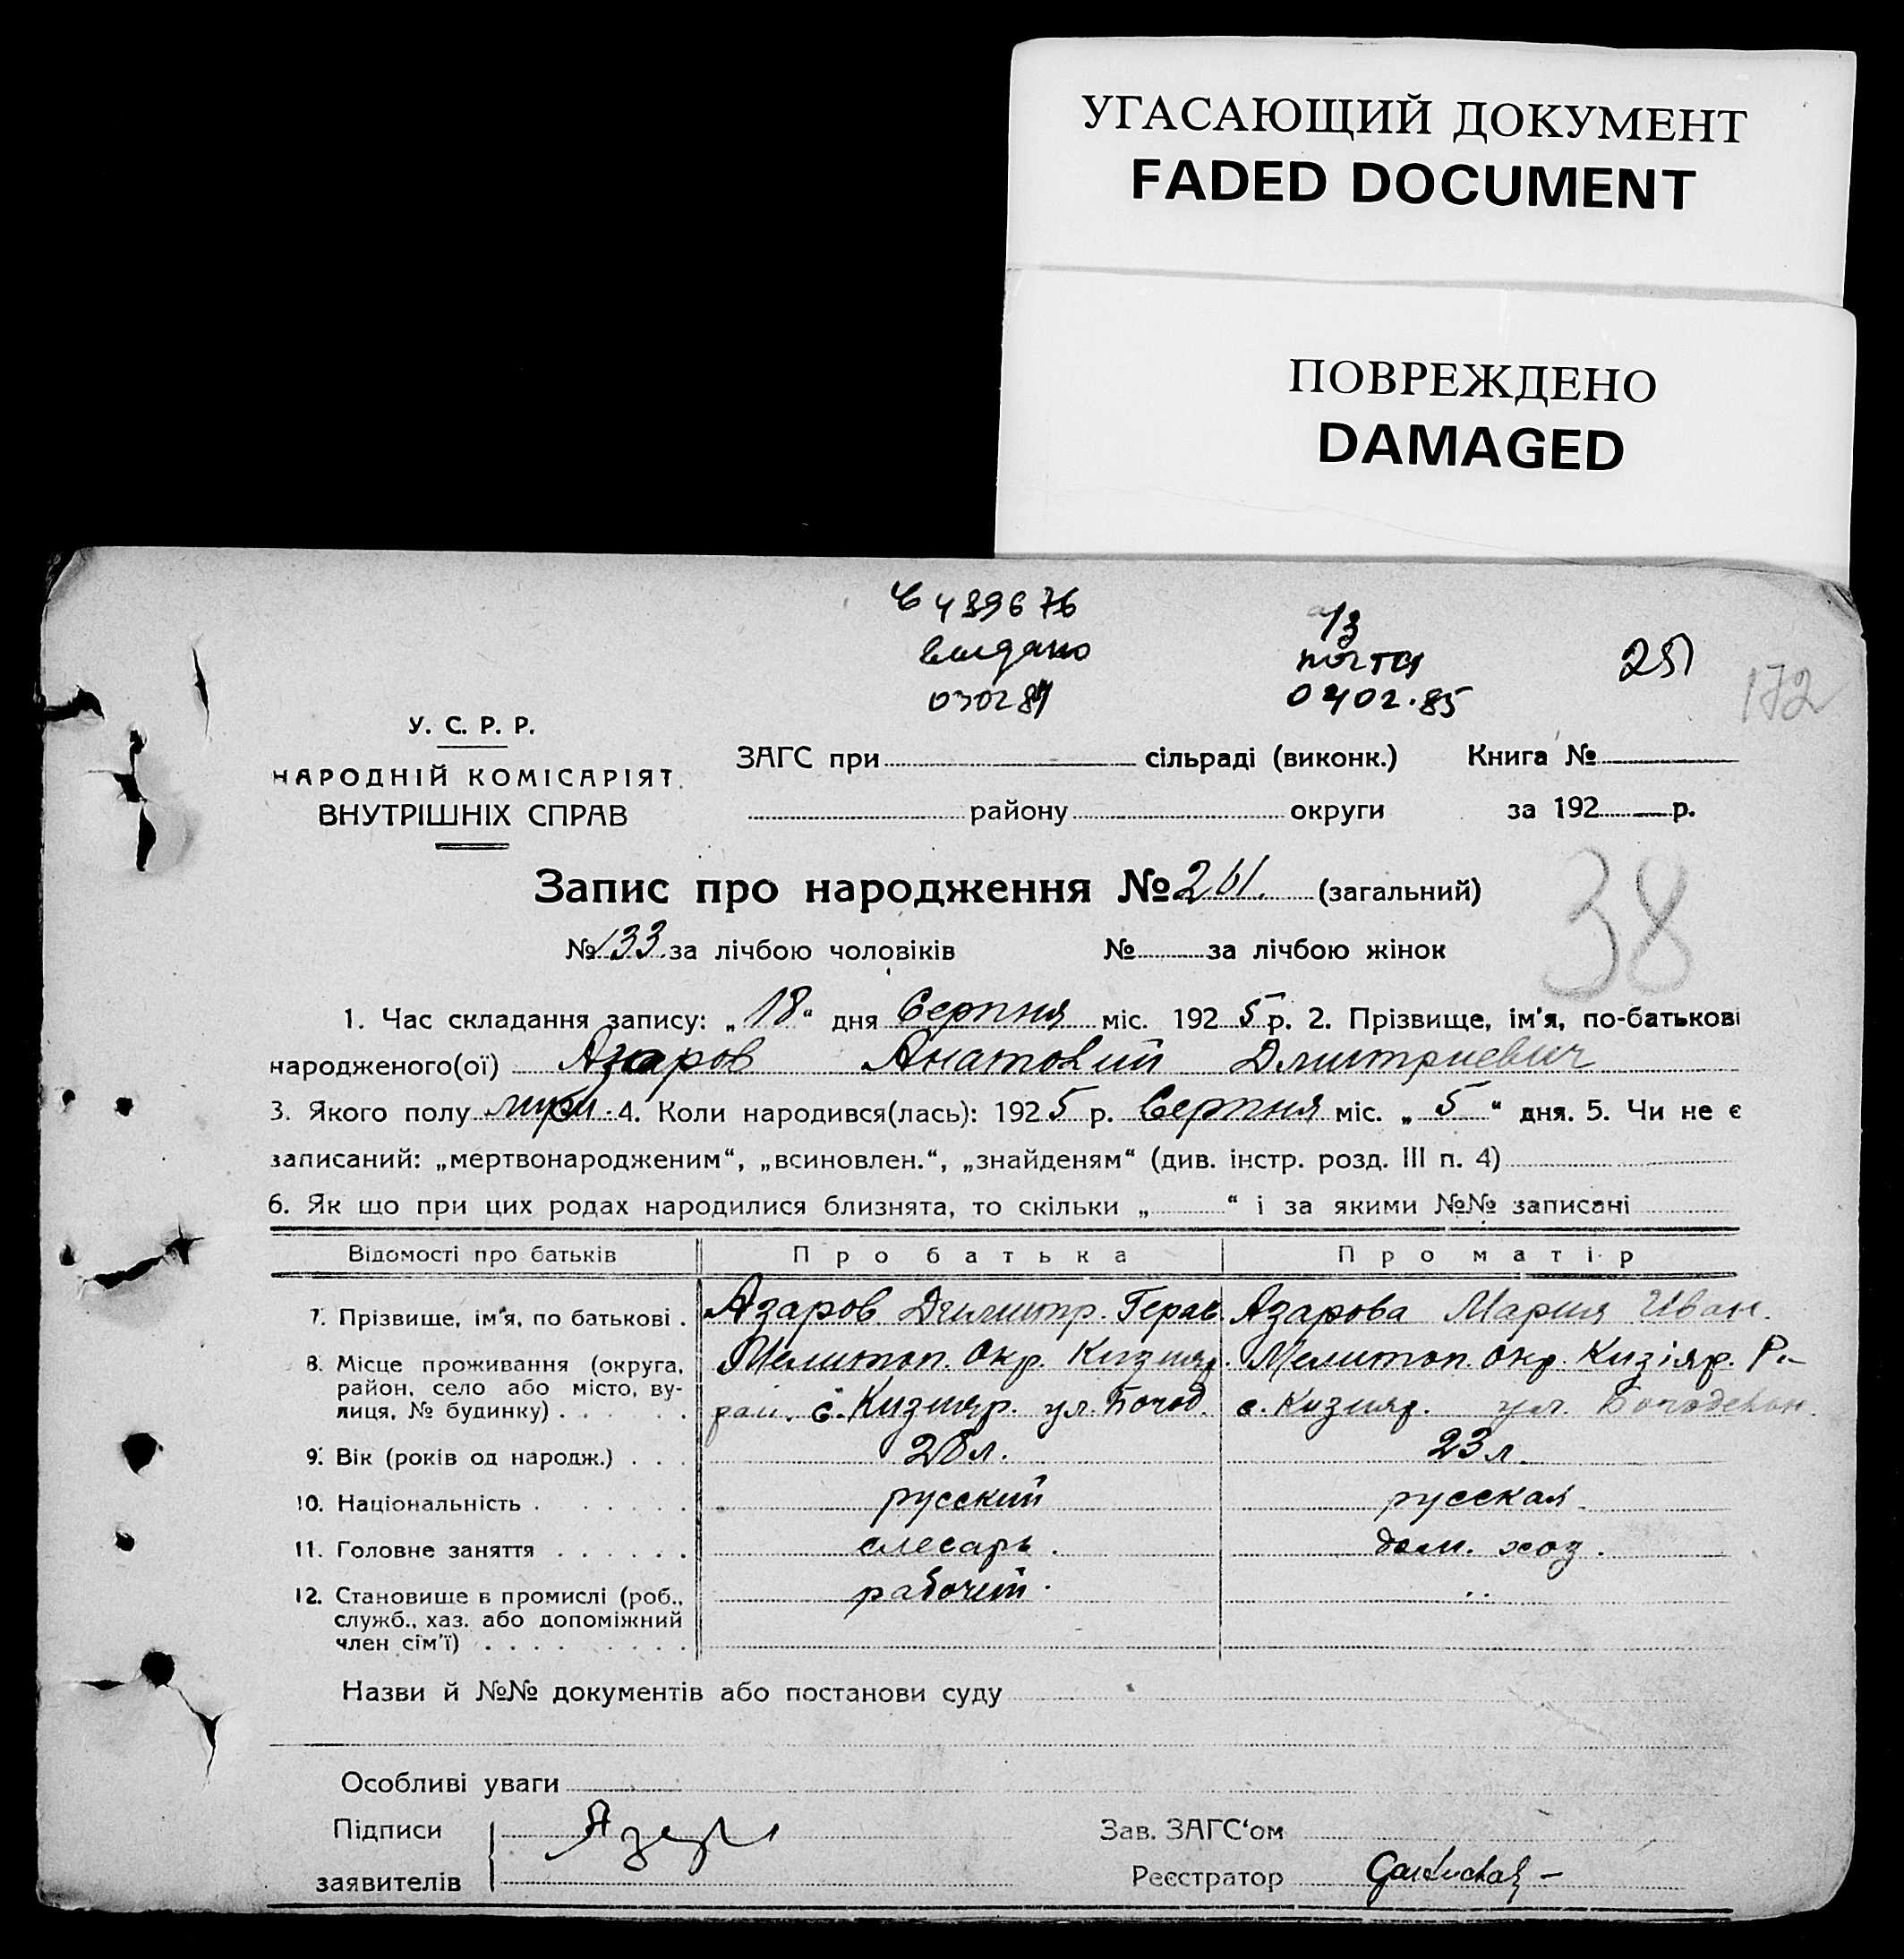 УГАСАЮЩИЙ ДОКУМЕНТ
FADED DOCUMENT
ПОВРЕЖДЕНО
DAMAGED
видано
почта
0402.85
251
172
У. С. Р. Р.
НАРОДНІЙ КОМІСАРІЯТ
ВНУТРІШНІХ СПРАВ
ЗАГС при сільраді (виконк.) Книга №
району округи за 192 р.
Запис про народження № 261. (загальний)
38
№ 133 за лічбою чоловіків № за лічбою жінок
1. Час складання запису: „18“ дня Серпня міс. 1925 р. 2. Прізвище, ім'я, по-батькові
народженого(ої) Азаров Анатолий Дмитриевич
3. Якого полу муж. 4. Коли народився(лась): 1925 р. Серпня міс. „5“ дня. 5. Чи не є
записаний: „мертвонародженим“, „всиновлен.“, „знайденям“ (див. інстр. розд. III п. 4)
6. Як що при цих родах народилися близнята, то скільки „ “ і за якими №№ записані
Відомості про батьків Про батька Про матір
7. Прізвище, ім'я, по батькові . Азаров Дмитр. Герас. Азарова Мария Иван.
8. Місце проживання (округа, Мелитоп. Окр. Кизияр. Мелитоп. Окр. Кизіяр. Р.-
район, село або місто, ву-
лиця, № будинку) . . . . . . рай. с. Кизияр. ул. с. Кизияр. ул.
9. Вік (років од народж.) . . . 28 л. 23 л.
10. Національність . . . . . . русский русская
11. Головне заняття . . . . . . слесарь. дом. хоз.
12. Становище в промислі (роб., рабочий. "
служб., хаз. або допоміжний
член сім'ї) . . . . . . . . .
Назви й №№ документів або постанови суду
Особливі уваги
Підписи Зав. ЗАГС'ом
заявителів Реєстратор